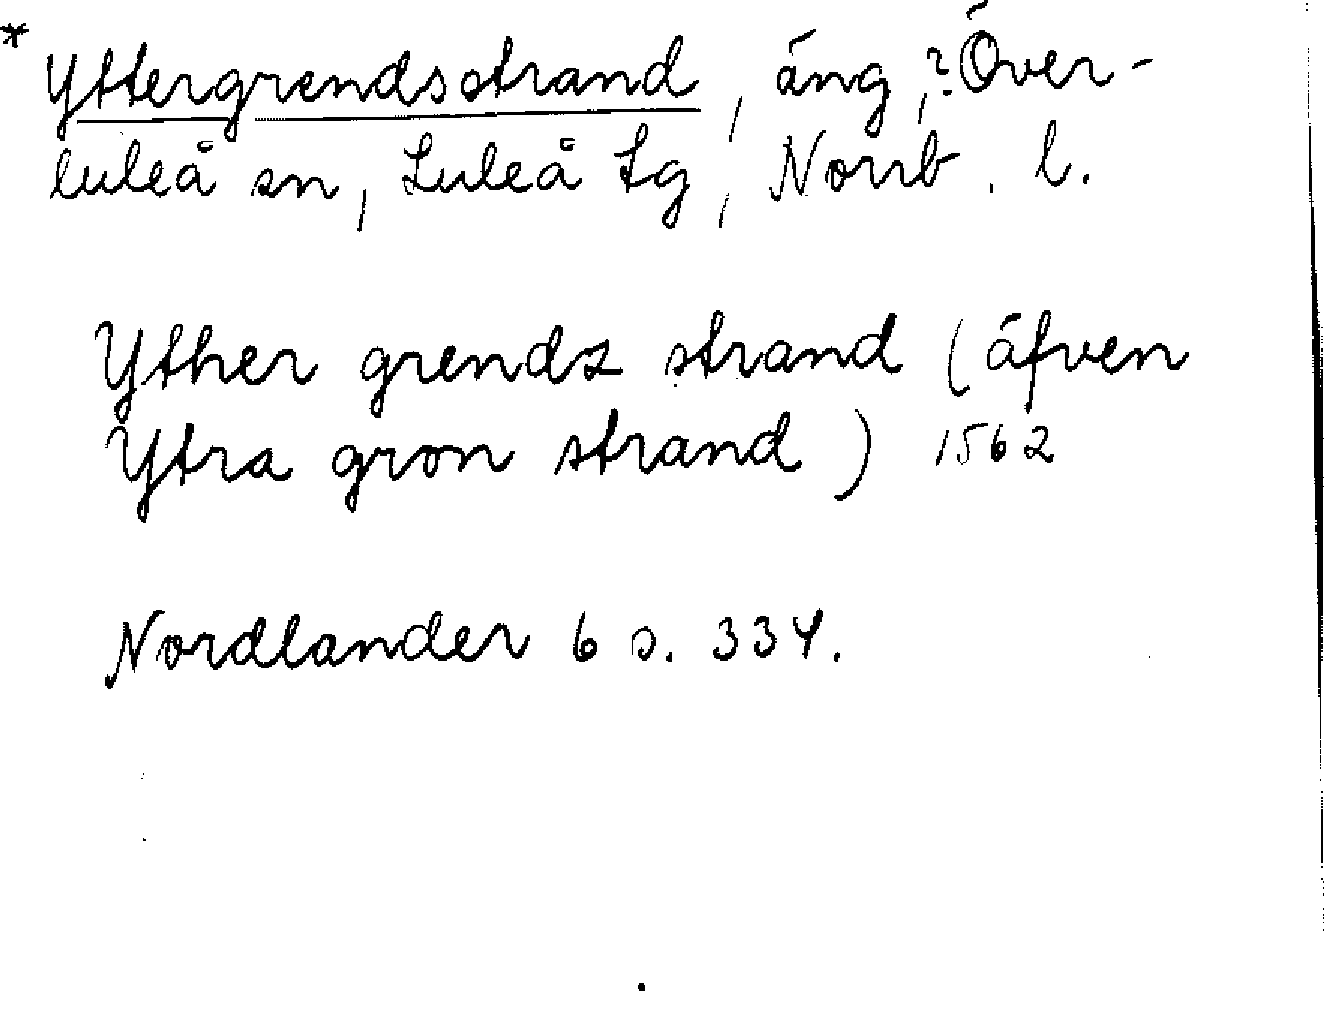 * Yttergrendsstrand, äng, ? Över-
luleå sn, Luleå tg, Norrb. l.
Yther grendz strand (äfven
Ytra gron strand) 1562
Nordlander 6 s. 334.